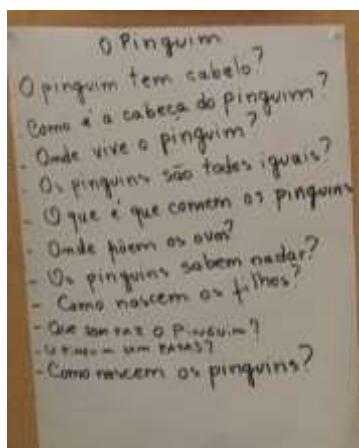 O Pinguim
O pinguim tem cabelo?
Como é a cabeça do pinguim?
- Onde vive o pinguim?
- Os pinguins são todos iguais?
- O que é que comem os pinguins
- Onde põem os ovos?
- Os pinguins sabem nadar?
- Como nascem os filhos?
- Que som faz o Pinguim?
- Como nascem os pinguins?